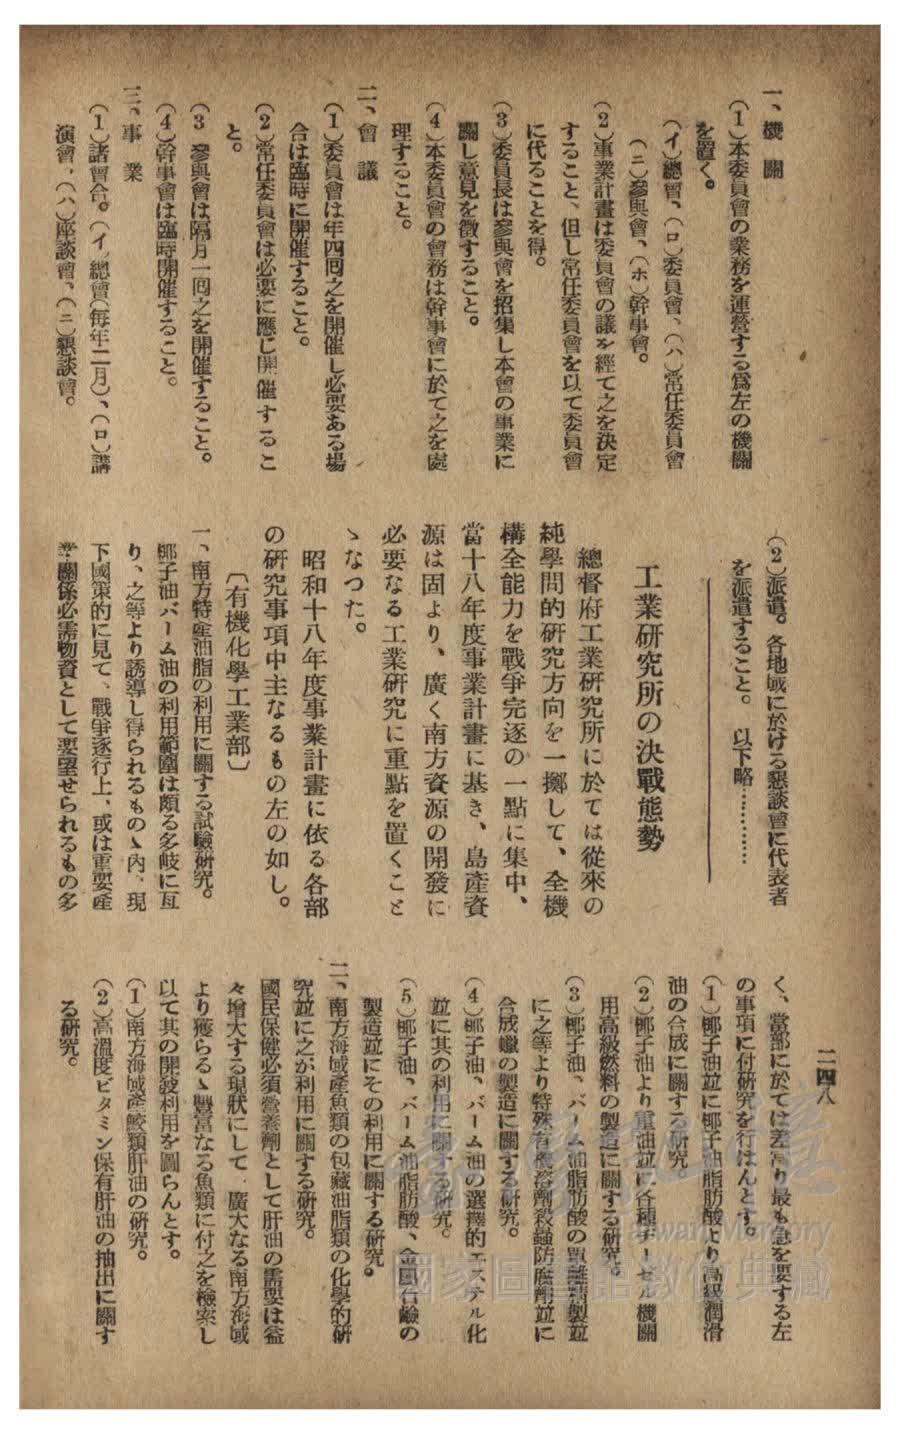 二四八
一、機關
(1)本委員會の業務を運營する爲左の機關
を置く。
(イ)總會、(ロ)委員會、(ハ)常任委員會
(ニ)參與會、(ホ)幹事會。
(2)事業計畫は委員會の議を經て之を決定
すること、但し常任委員會を以て委員會
に代ることを得。
(3)委員長は參與會を招集し本會の事業に
關し意見を徵すること。
(4)本委員會の會務は幹事會に於て之を處
理すること。
二、會議
(1)委員會は年四囘之を開催し必要ある場
合は臨時に開催すること。
(2)常任委員會は必要に應じ開催するこ
と。
(3 參與會は隔月一囘之を開催すること。
(4)幹事會は臨時開催すること。
三、事業
(1)諸會合。(イ)總會(每年二月)、(ロ)講
演會、(ハ)座談會、(ニ)懇談會。
(2)派遣。各地域に於ける懇談會に代表者
を派遣すること。 以下略…………
工業研究所の決戰態勢
總督府工業研究所に於ては從來の
純學問的研究方向を一擲して、全機
構全能力を戰爭完遂の一點に集中、
當十八年度事業計畫に基き、島產資
源は固より、廣く南方資源の開發に
必要なる工業研究に重點を置くこと
ゝなつた。
昭和十八年度事業計畫に依る各部
の研究事項中主なるもの左の如し。
〔有機化學工業部〕
一、南方特產油脂の利用に關する試驗研究。
椰子油バーム油の利用範圍は頗る多岐に亙
り、之等より誘導し得られるものゝ內、現
下國策的に見て、戰爭遂行上、或は重要產
業關係必需物資として要望せられるもの多
く、當部に於ては差當り最も急を要する左
の事項に付研究を行はんとす。
(1)椰子油並に椰子油脂肪酸より高級潤滑
油の合成に關する研究。
(2)椰子油より重油並に各種ヂーゼル機關
用高級燃料の製造に關する研究。
(3)椰子油、バーム油脂肪酸の單離精製並
に之等より特殊有機溶劑殺蟲防腐劑並に
合成蠟の製造に關する研究。
(4)椰子油、バーム油の選擇的エステル化
並に其の利用に關する研究。
(5)椰子油、バーム油脂肪酸、金屬石鹼の
製造並にその利用に關する研究。
二、南方海域產魚類の包藏油脂類の化學的硏
究並に之が利用に關する研究。
國民保健必須營養劑として肝油の需要は益
々增大する現狀にして 廣大なる南方海域
より獲らるゝ豐富なる魚類に付之を檢索し
以て其の開發利用を圖らんとす。
(1)南方海域產鮫類肝油の研究。
(2)高溫度ビタミン保有肝油の抽出に關す
る研究。
臺灣記憶
Taiwan Memory
國家圖書館數位典藏